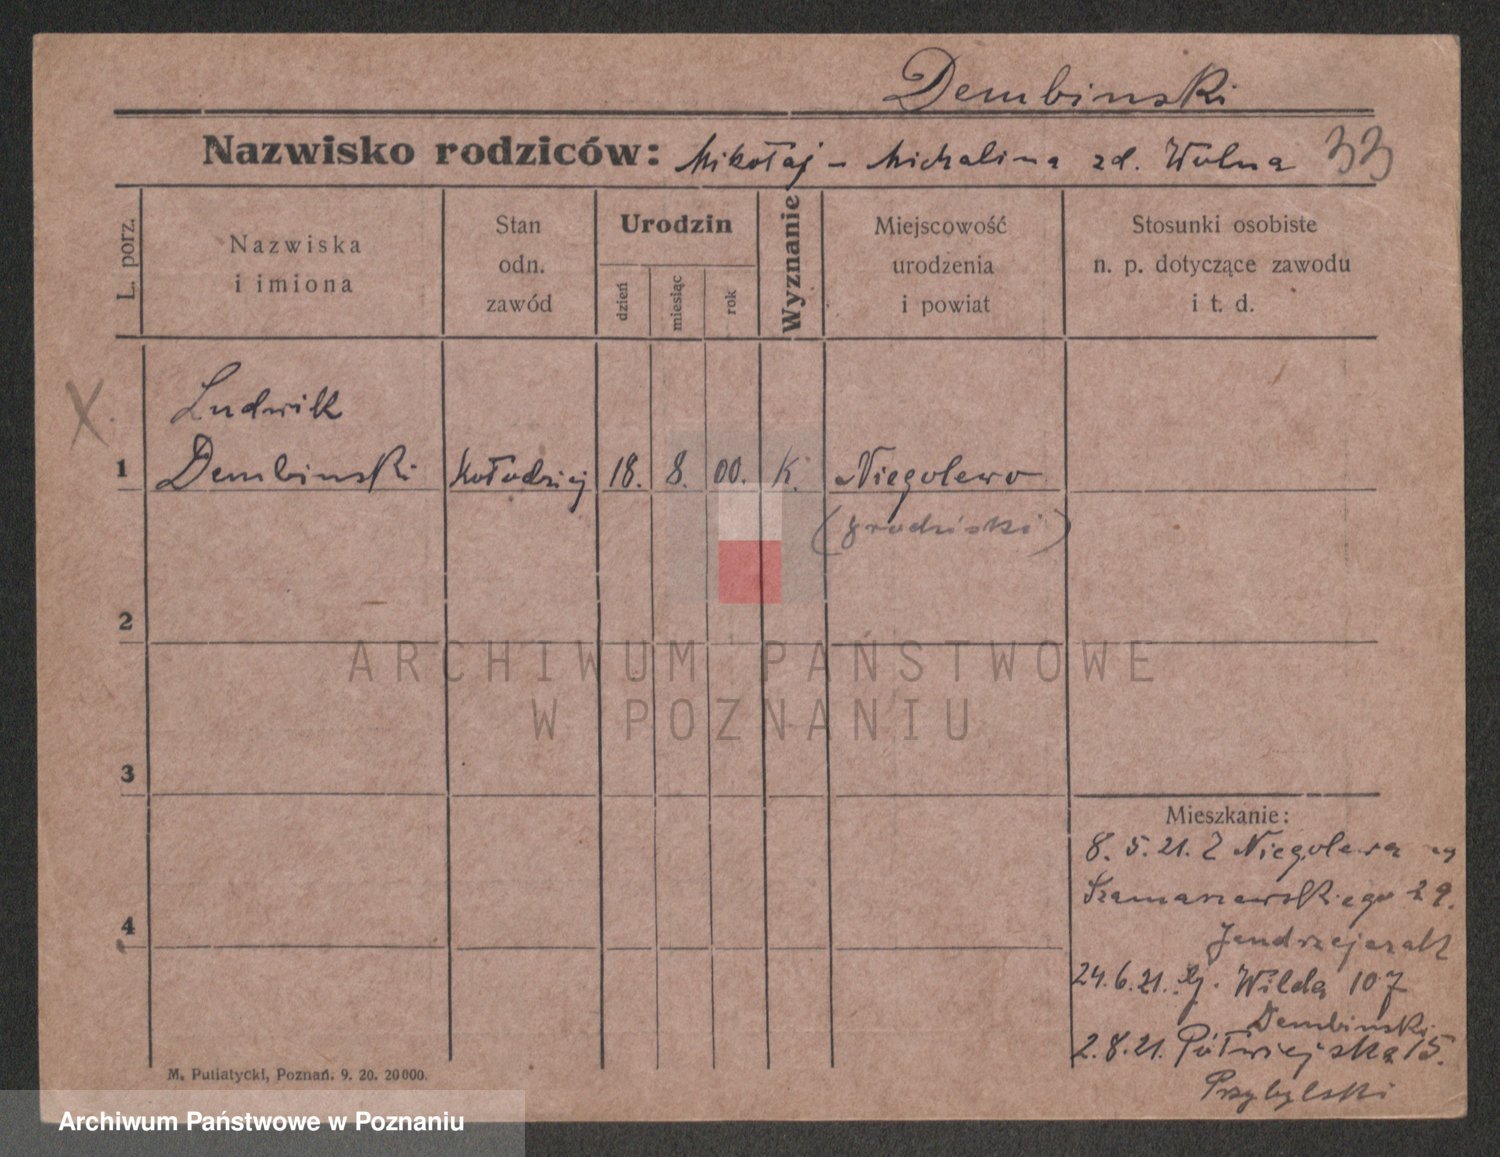 Dembinski
Nazwisko rodziców: Mikołaj - Michalina zd. Wolna 33
L. porz.
Nazwiska
i imiona
Stan
odn.
zawód
Urodzin
dzień
miesiąc
rok
Wyznanie
Miejscowość
urodzenia
i powiat
Stosunki osobiste
n. p. dotyczące zawodu
i t. d.
X
Ludwik
1 Dembinski kołodziej 18. 8. 00. K. Niegolewo
(grodziski)
2
ARCHIWUM PAŃSTWOWE
W POZNANIU
3
Mieszkanie:
8. 5. 21. Z Niegolewa
4 Szamarzewskiego 29.
24. 6. 21. Wilda 107
Dembinski
2. 8. 21. Półwiejska 15.
Przybylski
M. Putiatycki, Poznań. 9. 20. 20000.
Archiwum Państwowe w Poznaniu